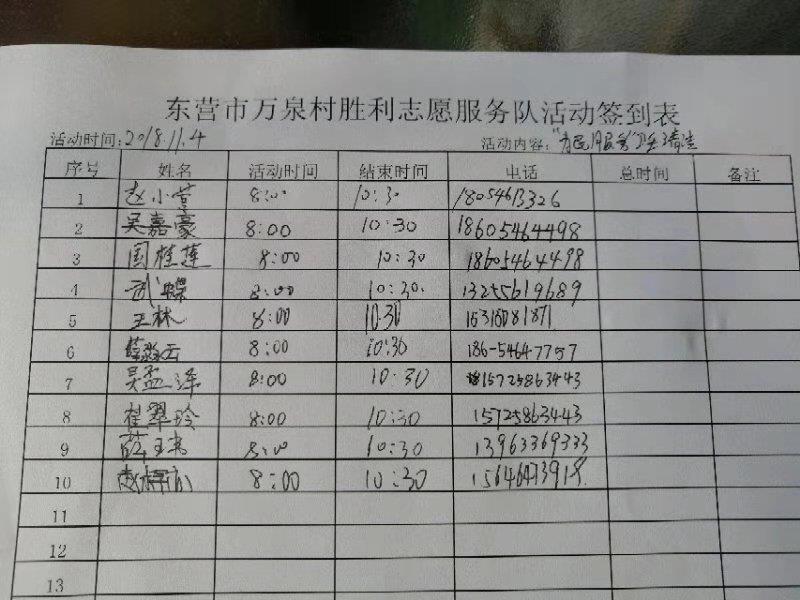 东营市万泉村胜利志愿服务队活动签到表
活动时间:2018.11.4 活动内容:"为民服务"卫生清洁
序号 姓名 活动时间 结束时间 电话 总时间 备注
1 赵小营 8:00 10:30 18054613326
2 吴嘉豪 8:00 10:30 18605464498
3 周桂莲 8:00 10:30 18605464498
4 武蝶 8:00 10:30. 13255619689
5 王林 8:00 10:30
6 8:00 10:30 186-5464-7757
7 吴孟泽 8:00 10:30 15725863443
8 崔翠玲 8:00 10:30 15725863443
9 薛玉 8:00 10:30 13963369333
10 8:00 10:30
11
12
13